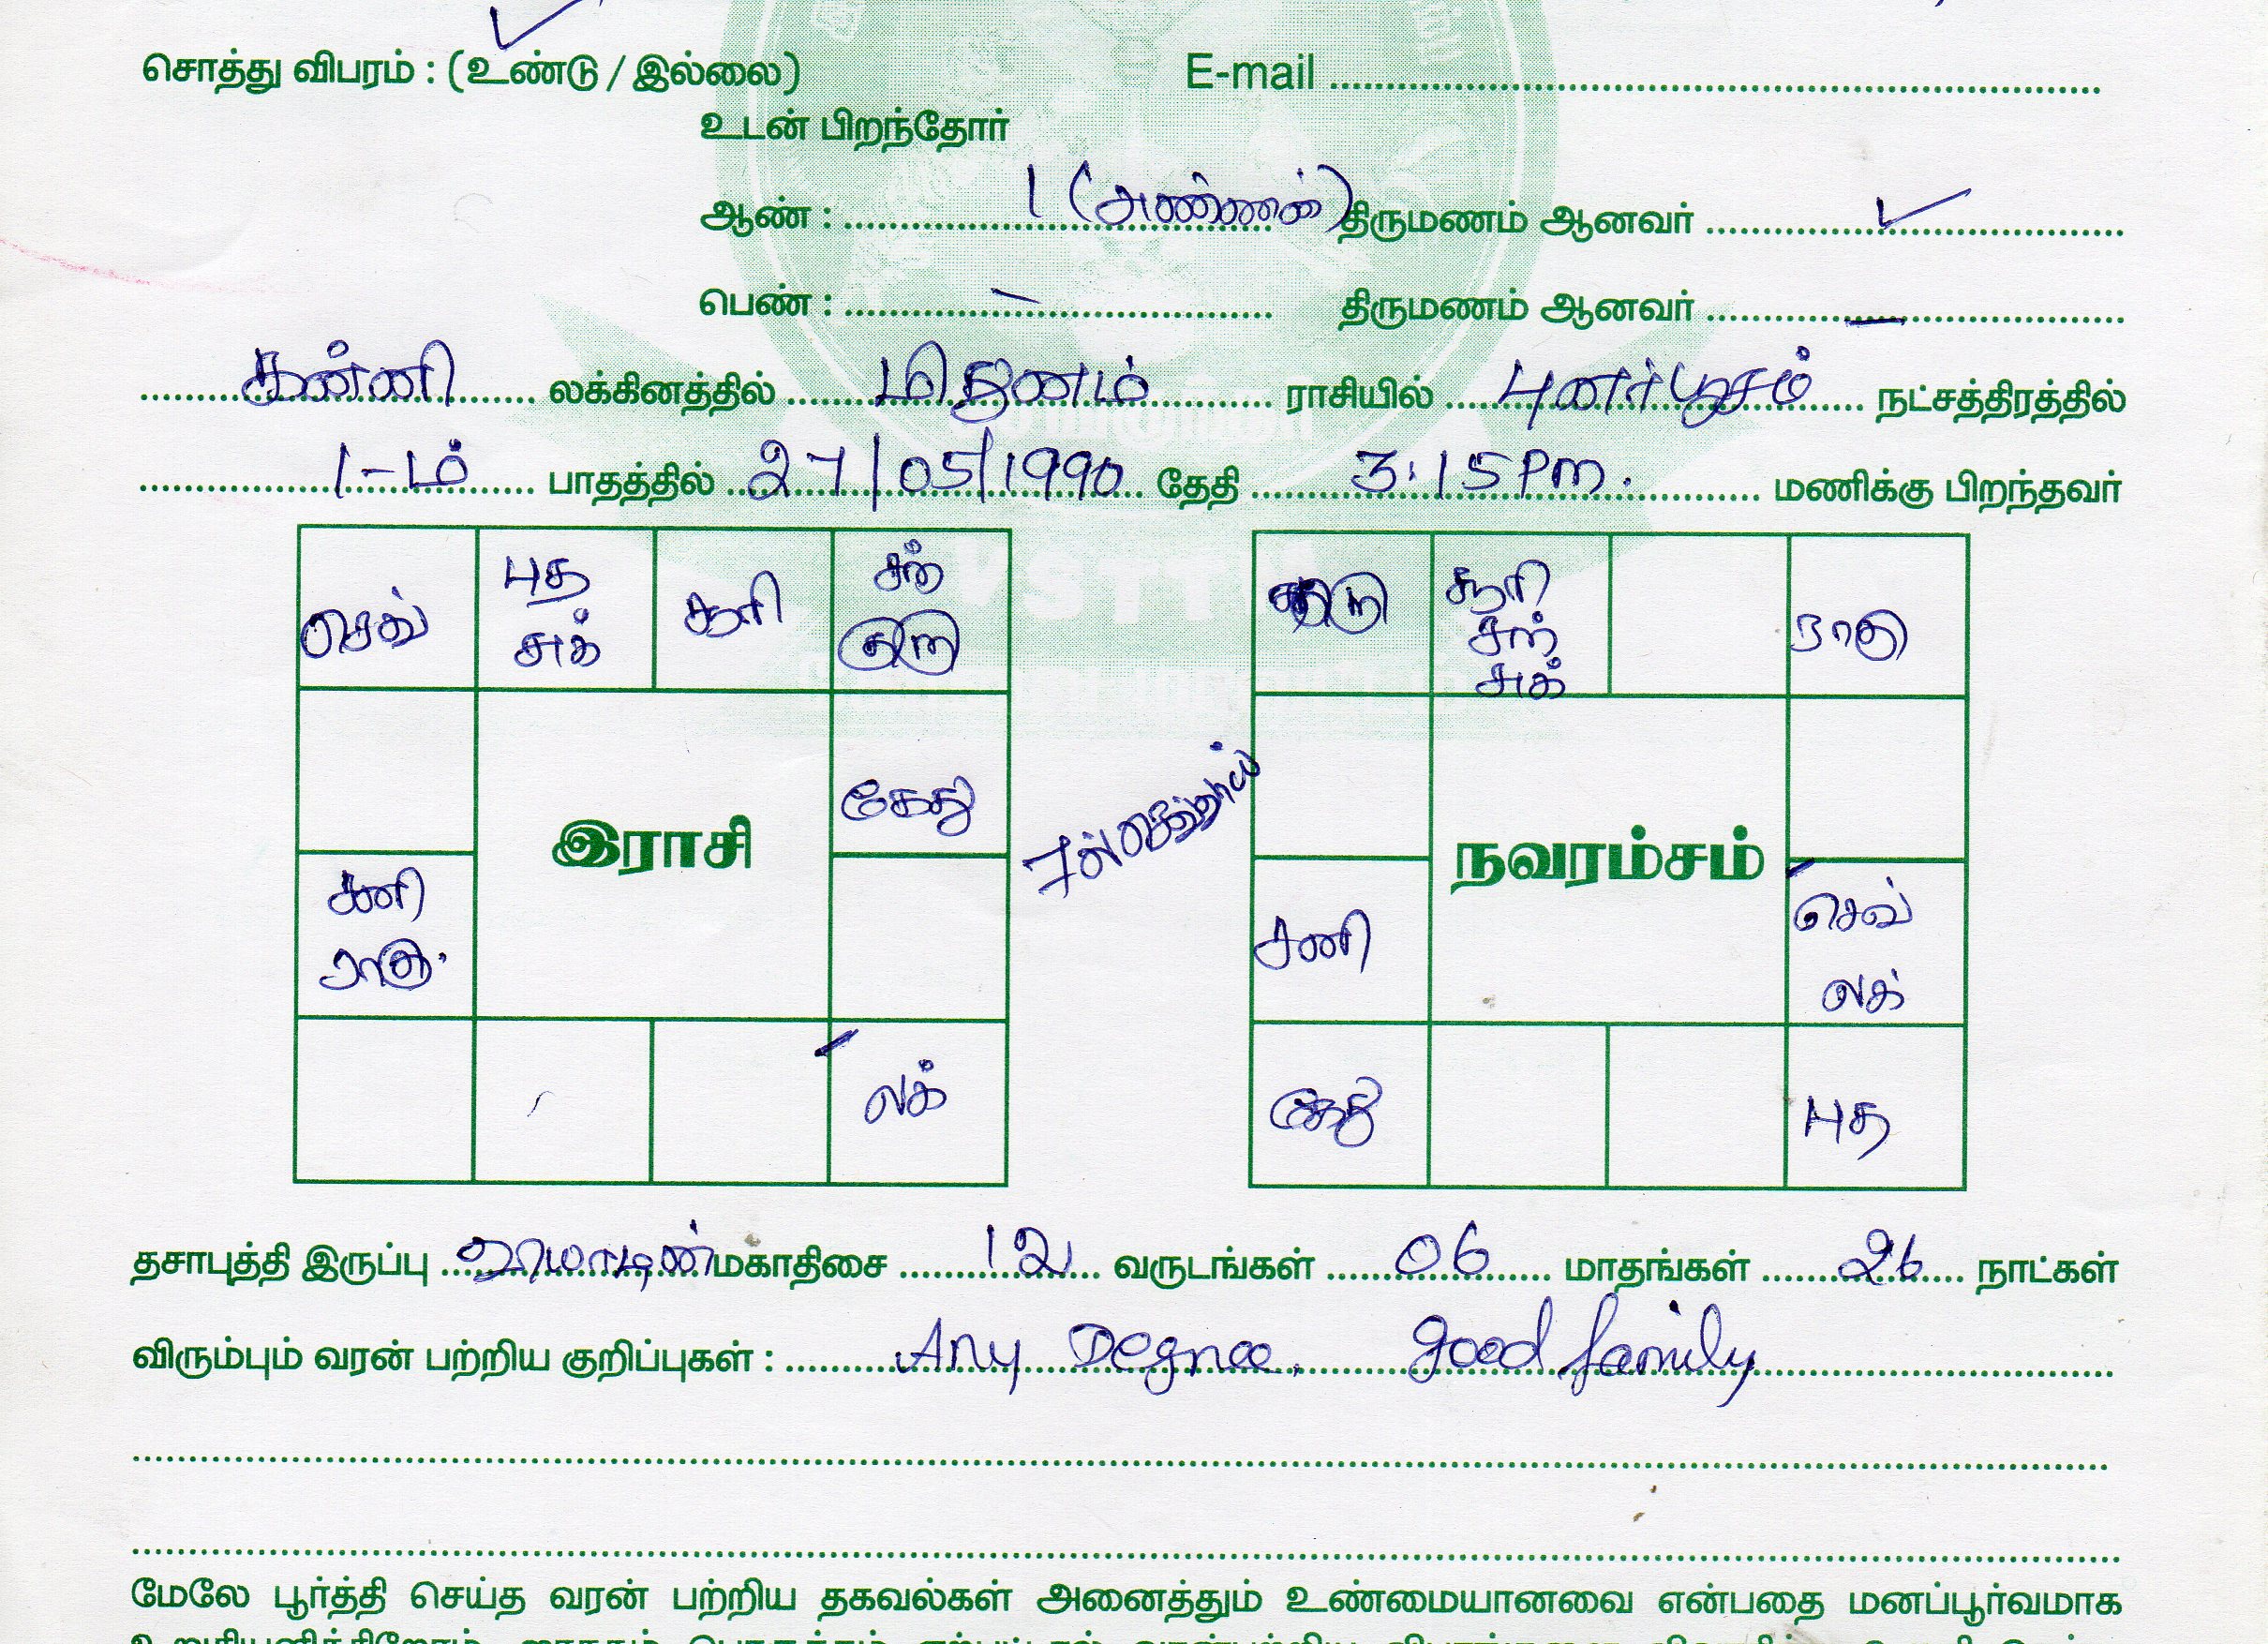 சொத்து விபரம் : (உண்டு / இல்லை) E-mail
உடன் பிறந்தோர்
ஆண் : 1 (அண்ணன்) திருமணம் ஆனவர் ✓
பெண் : – திருமணம் ஆனவர் –
கன்னி லக்கினத்தில் மிதுனம் ராசியில் புனர்பூசம் நட்சத்திரத்தில்
1-ம் பாதத்தில் 27/05/1990 தேதி 3.15 Pm. மணிக்கு பிறந்தவர்
செவ் புத சூரி சந்
சுக் குரு
கேது
இராசி
சனி
ராகு.
லக்
குரு சூரி ராகு
சந்
சுக்
நவரம்சம்
சனி செவ்
லக்
கேது புத
தசாபுத்தி இருப்பு மகாதிசை 12 வருடங்கள் 06 மாதங்கள் 26 நாட்கள்
விரும்பும் வரன் பற்றிய குறிப்புகள் : Any Degree. good family
மேலே பூர்த்தி செய்த வரன் பற்றிய தகவல்கள் அனைத்தும் உண்மையானவை என்பதை மனப்பூர்வமாக